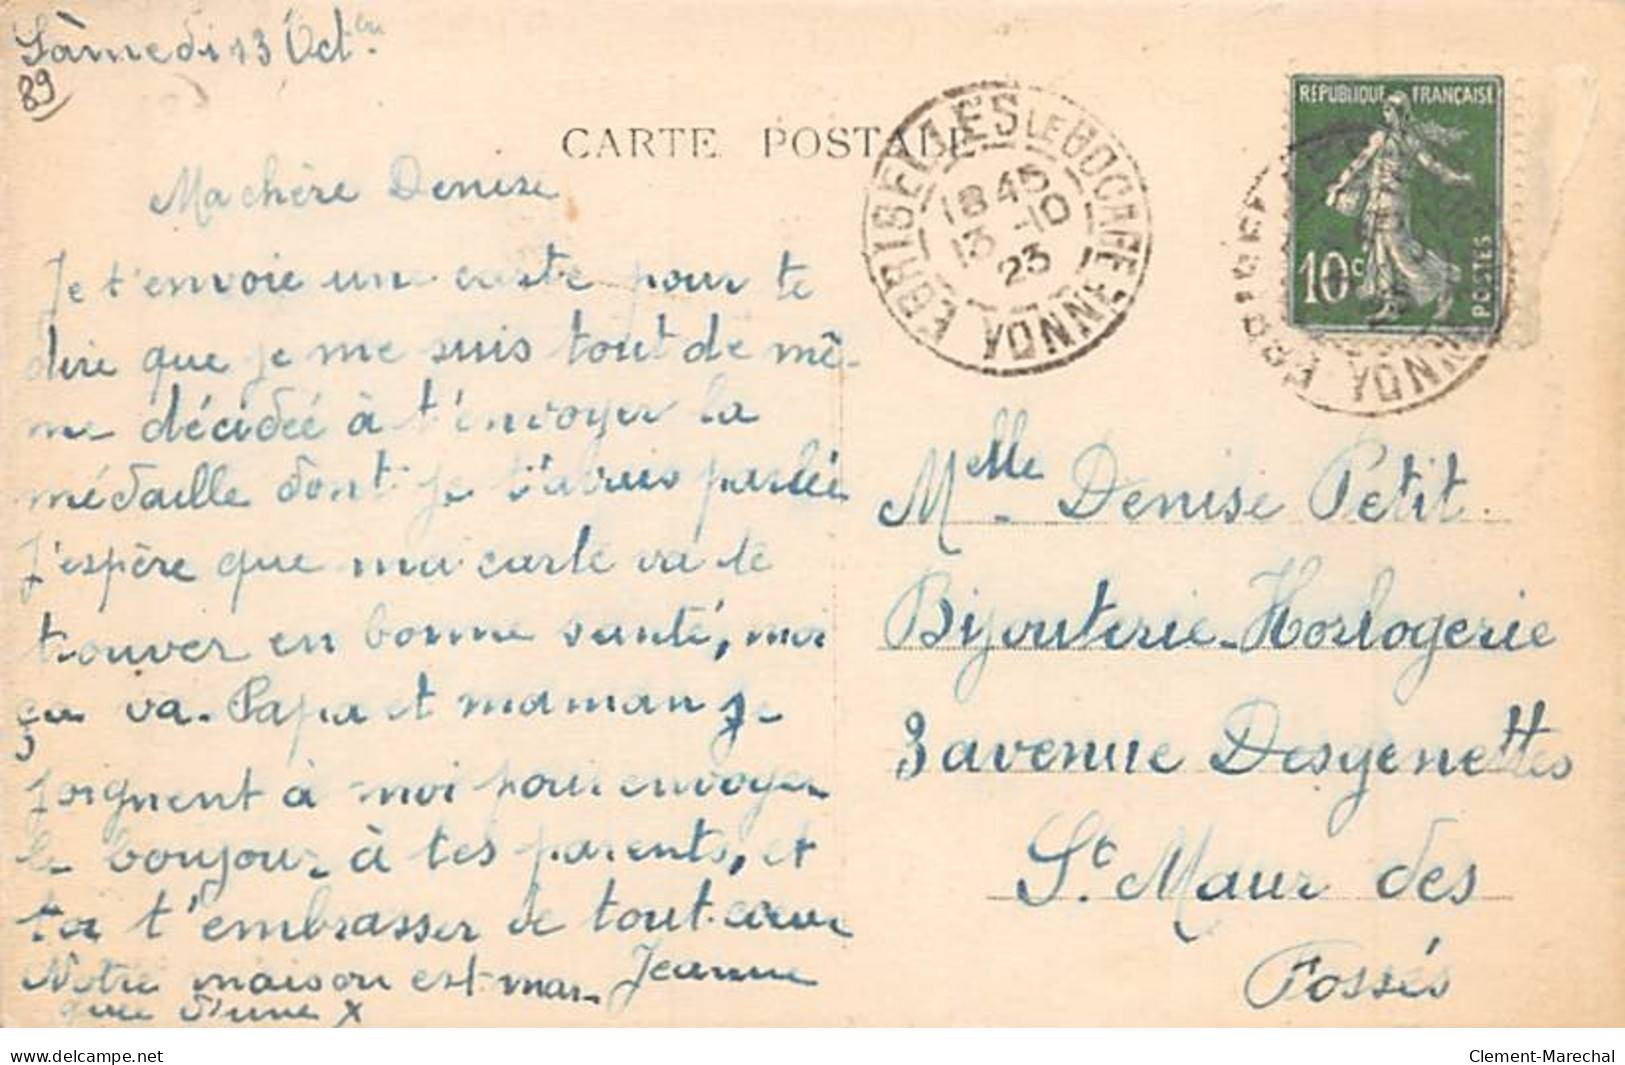 Samedi 13 Octbre
89
CARTE POSTALE
Ma chère Denise
Je t'envoie une carte pour te
dire que je me suis tout de mê-
me décidée à t'envoyer la
médaille dont je t'avais parlée
J'espère que ma carte va te
trouver en bonne santé, moi
ça va. Papa et maman se
joignent à moi pour envoyer
le bonjour à tes parents, et
toi t'embrasser de tout cœur
Notre maison est mar- Jeanne
quée d'une x
BRISELLES LE BOCAGE YONNE
18 45
13 -10
23
REPUBLIQUE FRANÇAISE
10c
POSTES
YONNE
Melle Denise Petit
Bijouterie-Horlogerie
3 avenue Desgenettes
St Maur des
Fossés
delcampe.net
Clement-Marechal